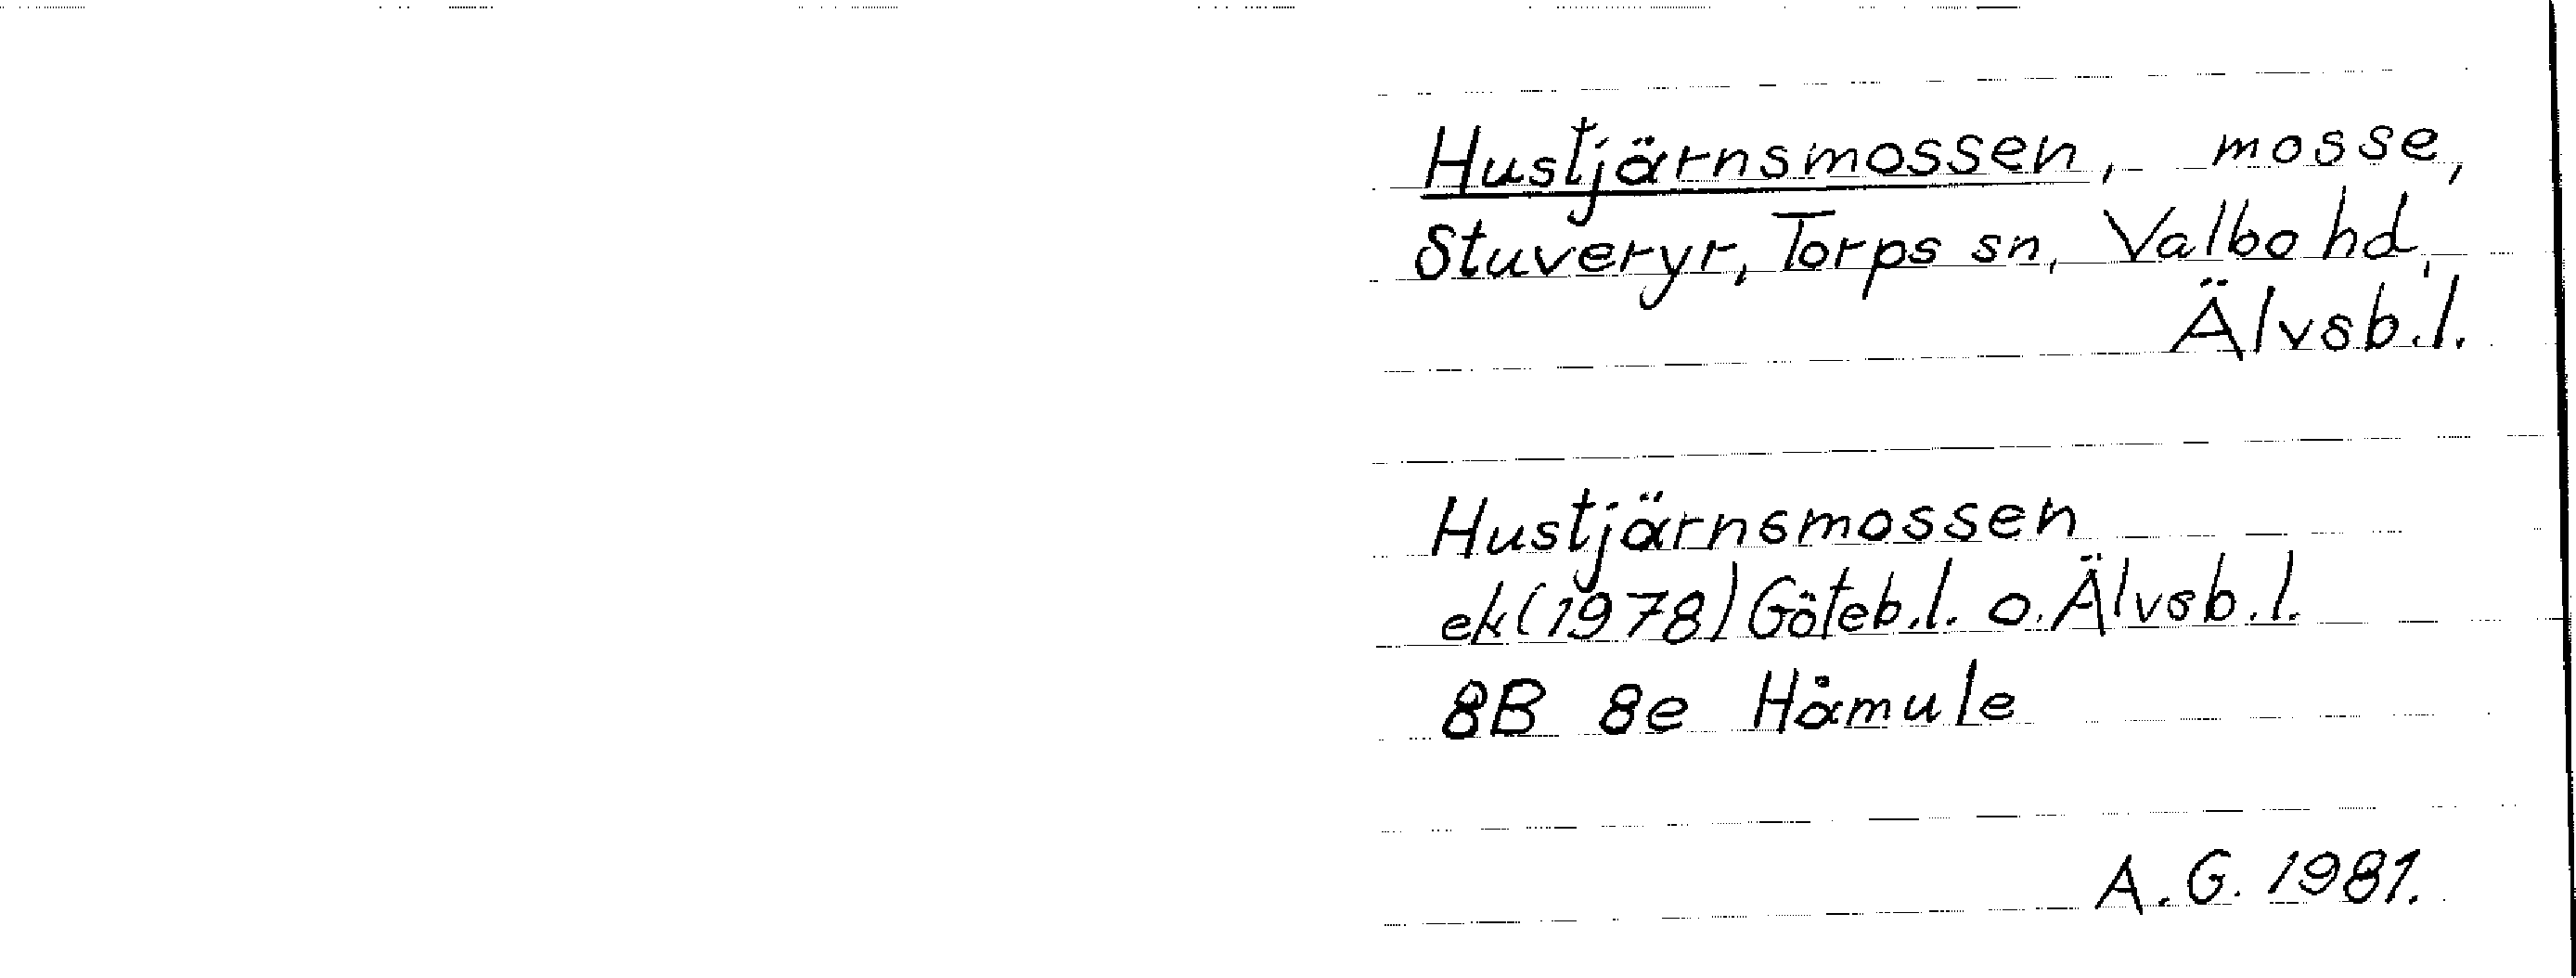 Hustjärnsmossen, mosse,
Stuveryr, Torps sn, Valbo hd,
Älvsb.l.
Hustjärnsmossen
ek(1978) Göteb.l. o. Älvsb.l.
8B 8e Håmule
A.G. 1981.